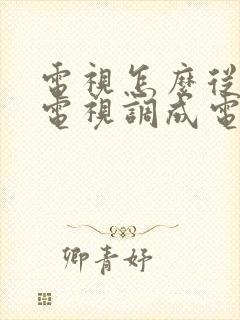 電視怎麼從
電視調成電
卿青妤